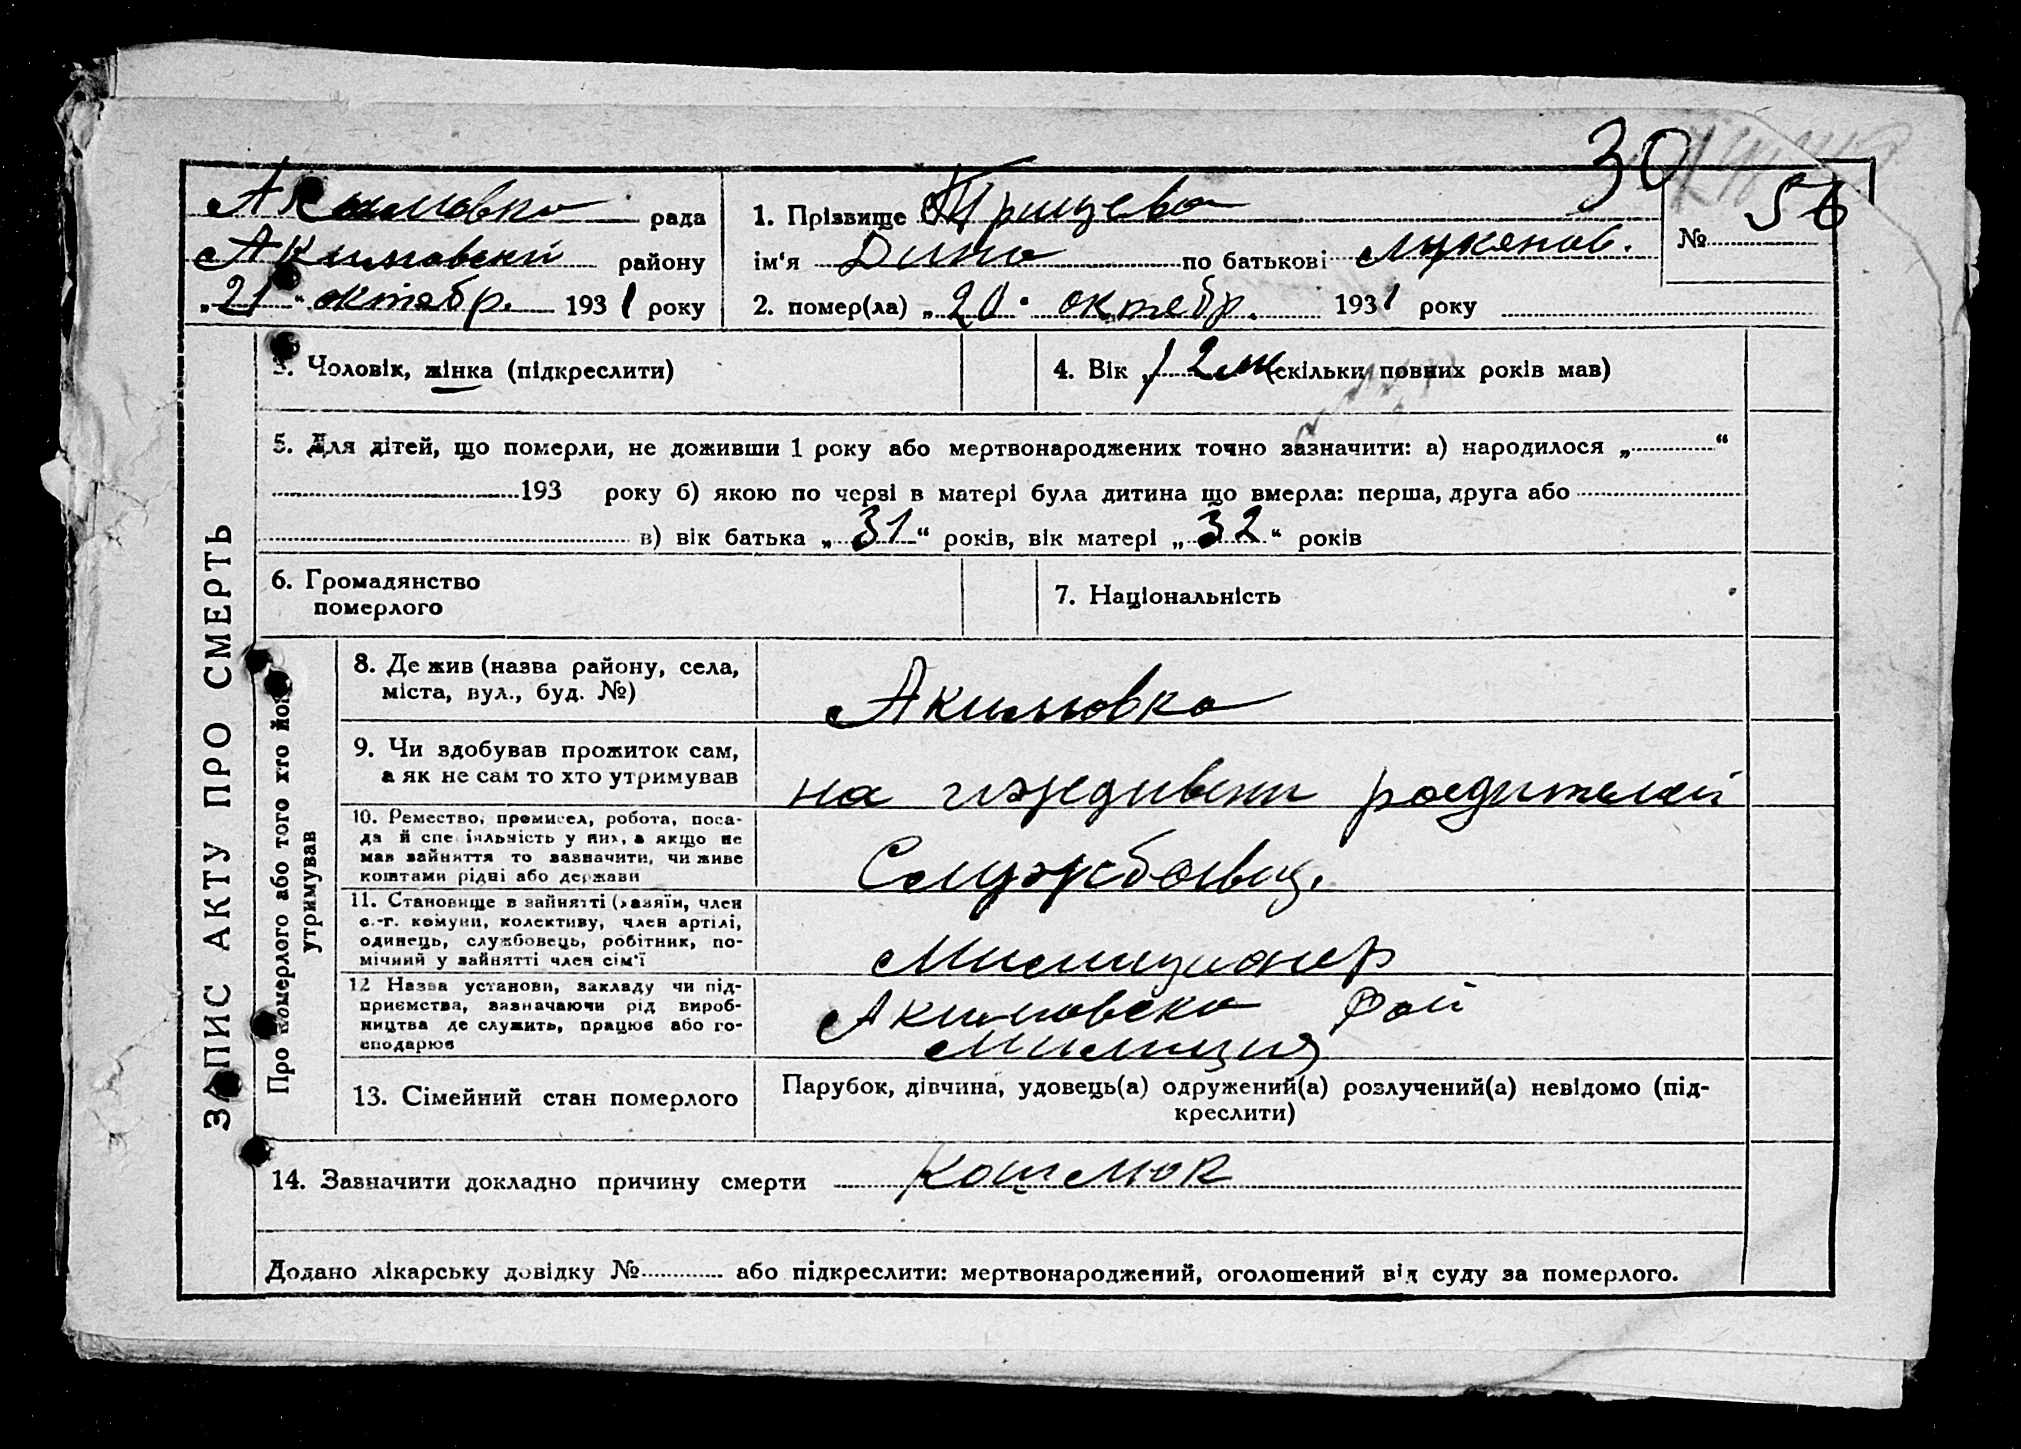 30
Акимовка рада
Акимовский району
„21“ октябр. 1931 року
1. Прізвище
ім'я Дина по батькові Лукянов.
№ 56
2. помер(ла) „20“ октябр. 1931 року
3. Чоловік, жінка (підкреслити)
4. Вік „ 12 м (скільки повних років мав)
5. Для дітей, що померли, не доживши 1 року або мертвонароджених точно зазначити: а) народилося „ “
193 року б) якою по черзі в матері була дитина що вмерла: перша, друга або
в) вік батька „31“ років, вік матері „32“ років
6. Громадянство
померлого
7. Національність
ЗАПИС АКТУ ПРО СМЕРТЬ
Про померлого або того хто його
утримував
8. Де жив (назва району, села,
міста, вул., буд. №)
Акимовка
9. Чи здобував прожиток сам,
а як не сам то хто утримував
на иждивени родителей
10. Ремество, промисел, робота, поса-
да й спеціяльність у них, а якщо не
мав зайняття то зазначити, чи живе
коштами рідні або держави
Службовец.
11. Становище в зайнятті (хазяїн, член
с.-г. комуни, колективу, член артілі,
одинець, службовець, робітник, по-
мічний у зайнятті член сім'ї
Милиционер
12 Назва установи, закладу чи під-
приємства, зазначаючи рід вироб-
ництва де служить, працює або го-
сподарює
Акимовска Рай
Милиция
13. Сімейний стан померлого
Парубок, дівчина, удовець(а) одружений(а) розлучений(а) невідомо (під-
креслити)
14. Зазначити докладно причину смерти
Додано лікарську довідку № або підкреслити: мертвонароджений, оголошений від суду за померлого.